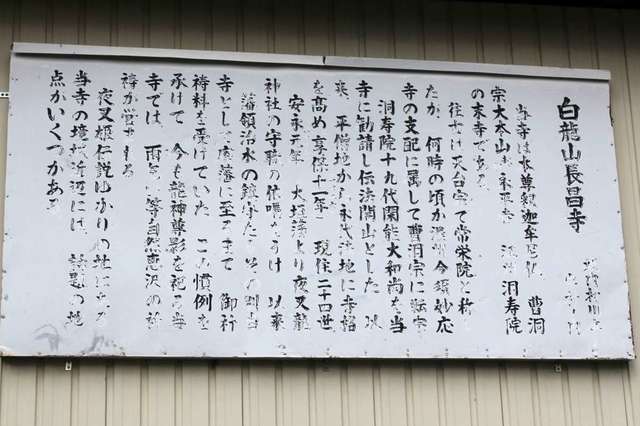 白龍山長昌寺
当寺は本尊釈迦牟尼仏 曹洞
宗大本山永平寺 洞寿院
の末寺である
往古は天台宗で常栄院と称し
たが 何時の頃か 今須妙応
寺の支配に属して曹洞宗に転宗
洞寿院十九代関能大和尚を当
寺に勧請し伝法開山とした 以
来、平僧地から永代法地に寺格
を高め 享保十一年 現住二十四世
安永元年 大垣藩より夜叉龍
神社の守職の依嘱をうけ 以来
藩領治水の鎮守 その別当
寺として廃藩に至るまで 御祈
祷料を受けていた この慣例を
承けて 今も龍神尊影を祀る当
寺では、雨乞 等自然恵沢の祈
祷が営まれる
夜叉姫伝説ゆかりの地にある
当寺の境域近辺には、 の地
点がいくつかある